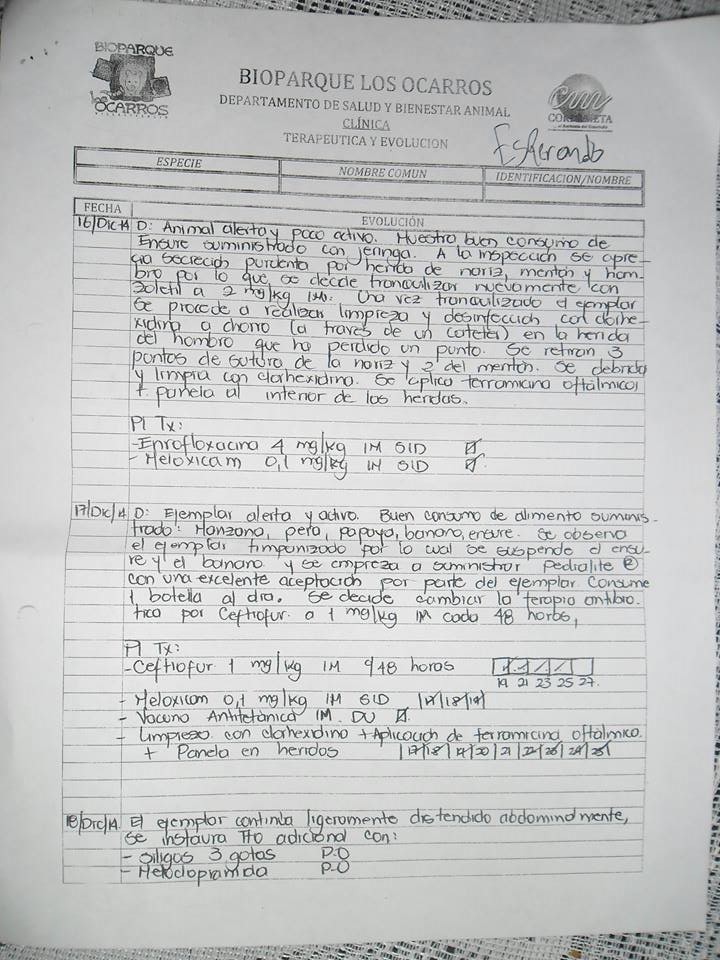 BIOPARQUE
Los
OCARROS
BIOPARQUE LOS OCARROS
DEPARTAMENTO DE SALUD Y BIENESTAR ANIMAL
CLÍNICA
TERAPEUTICA Y EVOLUCION
Esperando
ESPECIE
NOMBRE COMUN
IDENTIFICACION/NOMBRE
FECHA
EVOLUCIÓN
16/Dic 14 D: Animal alerta y poco activo. Muestra buen consumo de
Ensure suministrado con jeringa. A la inspección se apre-
cia secreción purulenta por herida de nariz, mentón y hom-
bro por lo que se decide tranquilizar nuevamente con
Zoletil a 2 mg/kg IM. Una vez tranquilizado el ejemplar
se procede a realizar limpieza y desinfección con clorhe-
xidina a chorro (a través de un cateter) en la herida
del hombro que ha perdido un punto. Se retiran 3
puntos de sutura de la nariz y 2 del mentón. Se debrida
y limpia con clorhexidina. Se aplica terramicina oftálmica
+ panela al interior de las heridas.
Pl Tx:
-Enrofloxacina 4 mg/kg IM SID
- Meloxicam 0,1 mg/kg IM SID
17/Dic/14 D: Ejemplar alerta y activo. Buen consumo de alimento suminis-
trado: Manzana, pera, papaya, banano, ensure. Se observa
el ejemplar timpanizado por lo cual se suspende el ensu-
re y el banano y se empieza a suministrar pedialite ®
con una excelente aceptación por parte del ejemplar. Consume
1 botella al dia. Se decide cambiar la terapia antibió-
tica por Ceftiofur a 1 mg/kg IM cada 48 horas,
Pl Tx:
-Ceftiofur 1 mg/kg IM c/48 horas
19 21 23 25 27
- Meloxicam 0,1 mg/kg IM SID |17|18|19|
- Vacuna Antitetánica IM. DU
- Limpieza con clorhexidina + Aplicación de terramicina oftálmica
+ Panela en heridas |17|18|19|20|21|22|23|24|25|
18/Dic/14 El ejemplar continúa ligeramente distendido abdominalmente,
se instaura tto adicional con:
- Siligas 3 gotas P.O
- Metoclopramida P.O